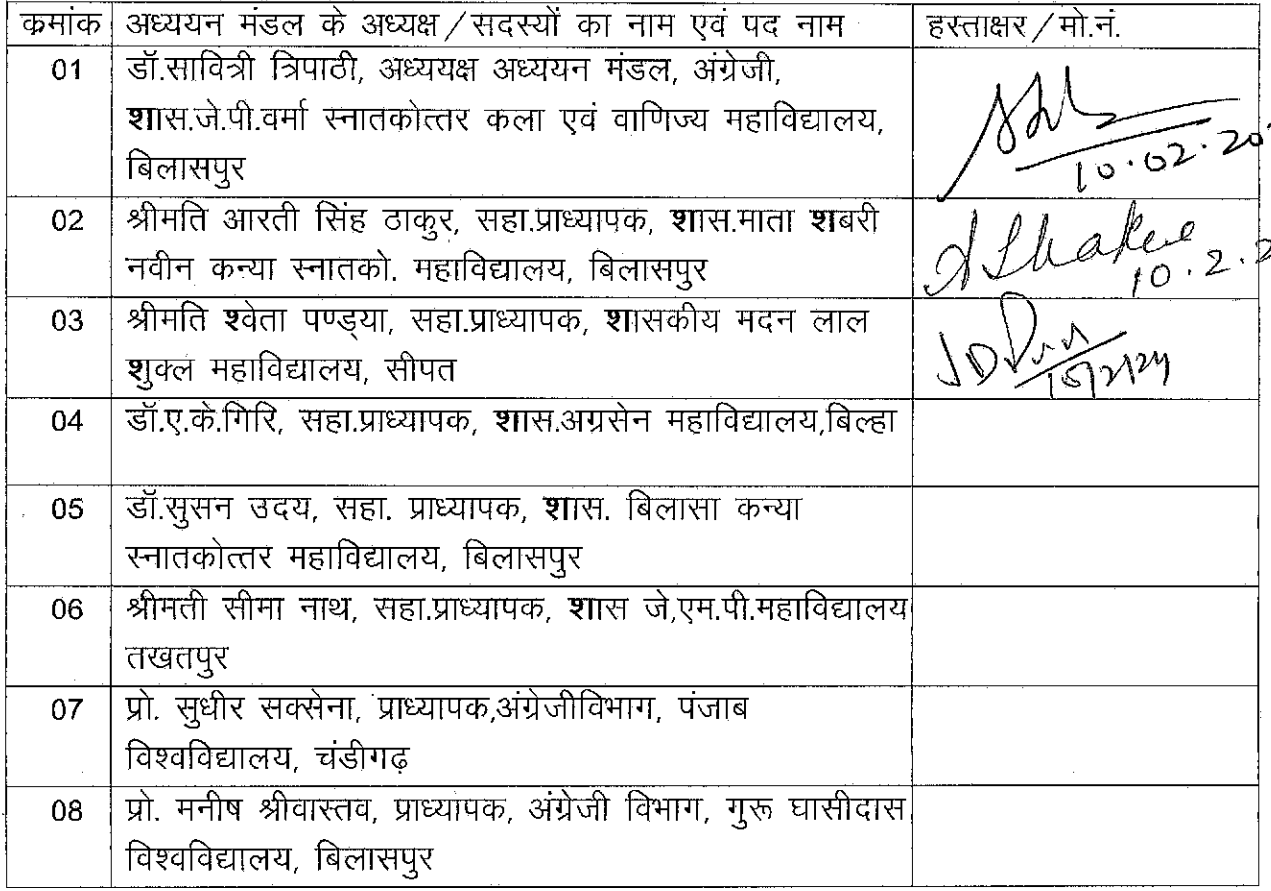 क्रमांक अध्ययन मंडल के अध्यक्ष/सदस्यों का नाम एवं पद नाम हस्ताक्षर/मो.नं.
01 डॉ.सावित्री त्रिपाठी, अध्ययक्ष अध्ययन मंडल, अंग्रेजी,
शास.जे.पी.वर्मा स्नातकोत्तर कला एवं वाणिज्य महाविद्यालय,
बिलासपुर
10.02.20
02 श्रीमति आरती सिंह ठाकुर, सहा.प्राध्यापक, शास.माता शबरी
नवीन कन्या स्नातको. महाविद्यालय, बिलासपुर
10.2.2
03 श्रीमति श्वेता पण्ड्या, सहा.प्राध्यापक, शासकीय मदन लाल
शुक्ल महाविद्यालय, सीपत
04 डॉ.ए.के.गिरि, सहा.प्राध्यापक, शास.अग्रसेन महाविद्यालय,बिल्हा
05 डॉ.सुसन उदय, सहा. प्राध्यापक, शास. बिलासा कन्या
स्नातकोत्तर महाविद्यालय, बिलासपुर
06 श्रीमती सीमा नाथ, सहा.प्राध्यापक, शास जे,एम.पी.महाविद्यालय
तखतपुर
07 प्रो. सुधीर सक्सेना, प्राध्यापक,अंग्रेजीविभाग, पंजाब
विश्वविद्यालय, चंडीगढ़
08 प्रो. मनीष श्रीवास्तव, प्राध्यापक, अंग्रेजी विभाग, गुरू घासीदास
विश्वविद्यालय, बिलासपुर